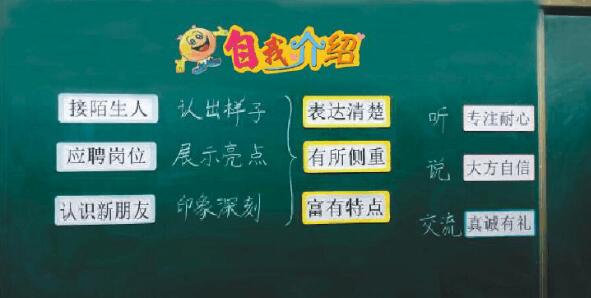 自我介绍
接陌生人 认出样子 表达清楚 听 专注耐心
应聘岗位 展示亮点 有所侧重 说 大方自信
认识新朋友 印象深刻 富有特点 交流 真诚有礼